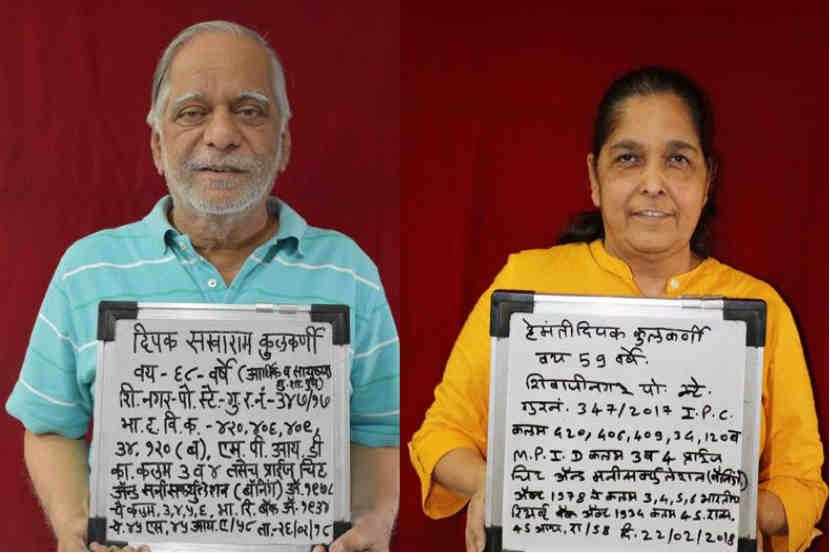 दिपक सखाराम कुलकर्णी
वय - ६८ - वर्षे (आर्थिक व सायबर
गु. शा. पुणे)
शि. नगर - पो. स्टे. - गु. र. नं - ३४७/१७
भा. द. वि. क. - ४२०, ४०६, ४०९,
३४, १२० (ब), एम. पी. आय. डी
का. कलम ३ व ४ तसेच प्राईज चिट
अँन्ड मनीसर्क्युलेशन (बॅनिंग) अँ. १९७८
चे कलम, ३, ४, ५, ६, भा. रि. बँक अँ. १९३४
चे. ४५ एस, ४५ आय. ए/५८ ता. - २६/०२/१८
हेमंती दिपक कुलकर्णी
वय 59 वर्षे.
शिवाजीनगर पो. स्टे.
गुरनं. 347/2017 I.P.C.
कलम 420, 406, 409, 34, 120 ब
M.P.I.D कलम 3 व 4 प्राईज
चिट अँन्ड मनीसर्क्युलेशन (बॅनिंग)
अँक्ट 1978 चे कलम 3, 4, 5, 6 भारतीय
रिझर्व्ह बँक अँक्ट 1934 कलम 45. एस.
45 आय. ए/58 दि. 22/02/2018